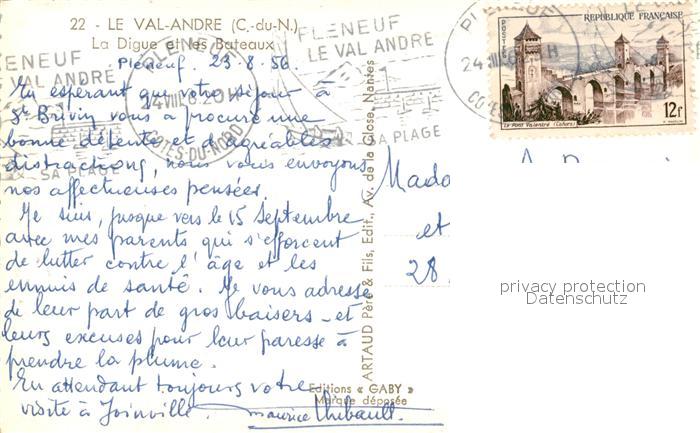 22 - LE VAL-ANDRE (C.-du-N.)
La Digue et les Bateaux
PLENEUF
LE VAL ANDRE
SA PLAGE
PLENEUF
24 VIII 6.20H
COTES-DU-NORD
PLENEUF
LE VAL ANDRE
SA PLAGE
Pléneuf. 23.8.56.
En espérant que votre séjour à
St Brivin vous a procuré une
bonne détente et d'agréables
distractions, nous vous envoyons
nos affectueuses pensées.
Je suis, jusque vers le 15 Septembre
avec mes parents qui s'efforcent
de lutter contre l'âge et les
ennuis de santé. Je vous adresse
de leur part de gros baisers - et
leurs excuses pour leur paresse à
prendre la plume.
En attendant toujours votre
visite à Joinville.
Maurice Thibault.
ARTAUD Père & Fils, Edit., Av. de la Close, Nantes
Editions « GABY »
Marque déposée
POSTES
RÉPUBLIQUE FRANÇAISE
Le Pont Valentré (Cahors)
12f
Mada
et
28
privacy protection
Datenschutz